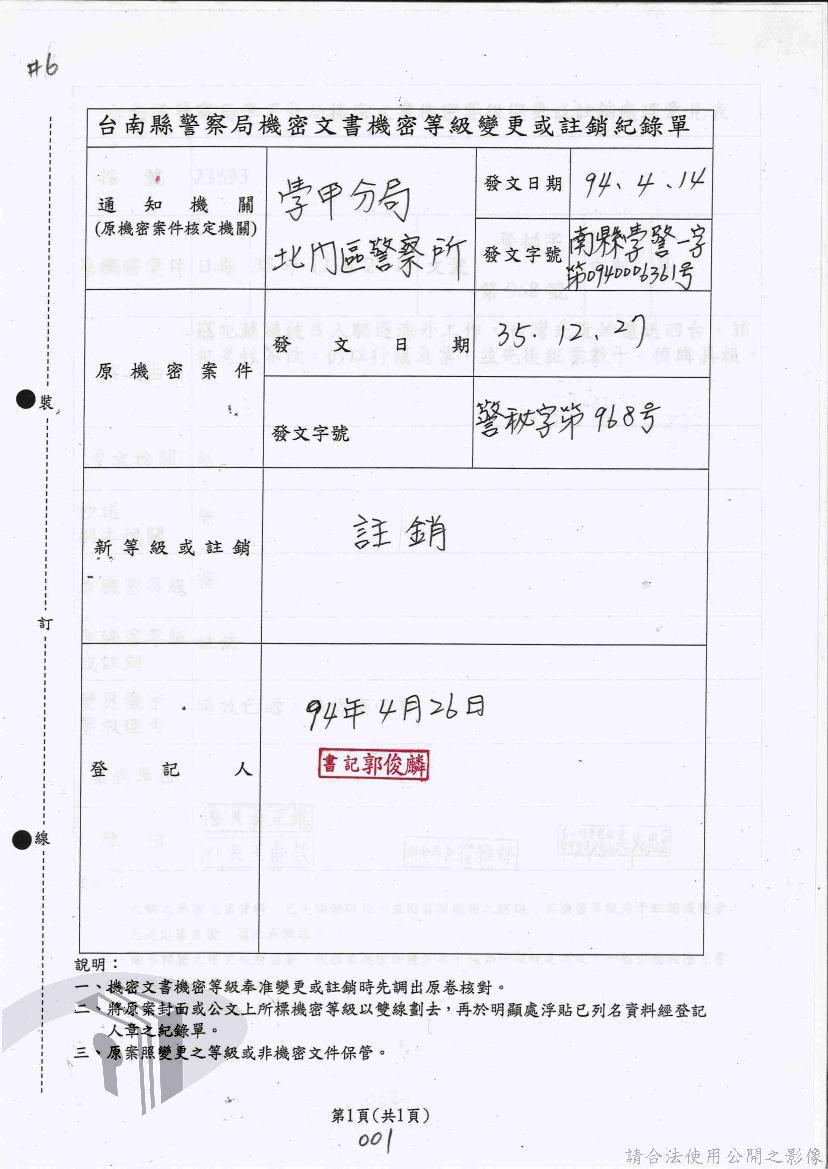 #6
台南縣警察局機密文書機密等級變更或註銷紀錄單
通知機關
(原機密案件核定機關)
學甲分局
北門區警察所
發文日期
94、4、14
發文字號
南縣學警一字
第0940006361号
原機密案件
發文日期
35、12、27
發文字號
警秘字第968号
新等級或註銷
註銷
登記人
94年4月26日
書記郭俊麟
裝
訂
線
說明：
一、機密文書機密等級奉准變更或註銷時先調出原卷核對。
二、將原案封面或公文上所標機密等級以雙線劃去，再於明顯處浮貼已列名資料經登記
人章之紀錄單。
三、原案照變更之等級或非機密文件保管。
第1頁(共1頁)
001
請合法使用公開之影像